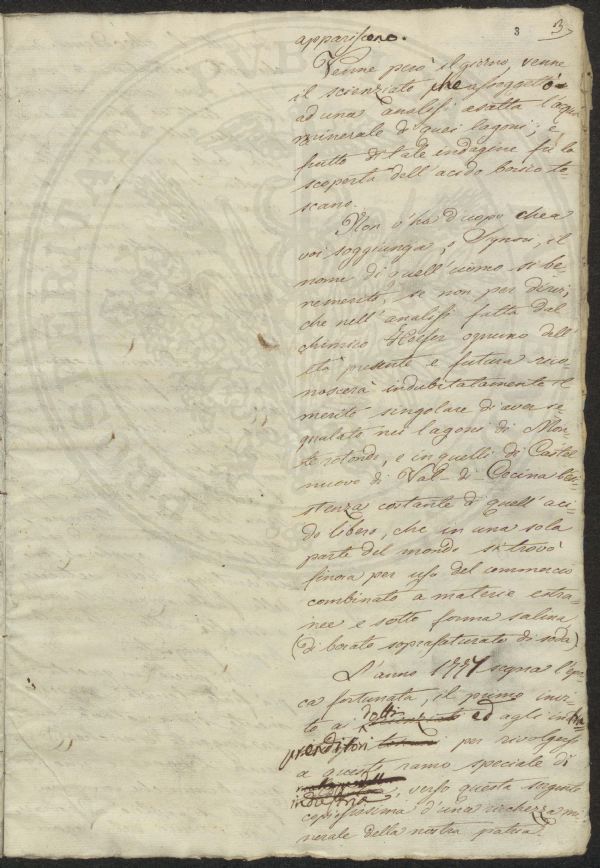 3 3
appariscono.
Venne però il giorno, venne
il scienziato che assoggettò
ad una analisi esatta l'acqua
minerale di quei lagoni; e
frutto di tale indagine fu la
scoperta dell'acido borico to-
scano.
Non v'ha d'uopo che a
voi soggiunga, o Signori, il
nome di quell'uomo sì be-
nemerito, se non per dirvi,
che nell'analisi fatta dal
chimico Hoefer ognuno dell'
età presente e futura rico-
noscerà indubitatamente il
merito singolare di aver se-
gnalato nei lagoni di Mon-
te rotondo, e in quelli di Castel
nuovo di Val-di-Cecina l'esi-
stenza costante di quell'aci-
do libero, che in una sola
parte del mondo si trovò
finora per uso del commercio
combinato a materie estra-
nee e sotto forma salina
(di borato soprasaturato di soda)
L'anno 1777 segna l'epo-
ca fortunata, il primo invi-
to a' dotti ed agli intra-
prenditori per rivolgersi
a questo ramo speciale di
industria, verso questa sorgente
copiosissima d'una ricchezza mi-
nerale della nostra patria.